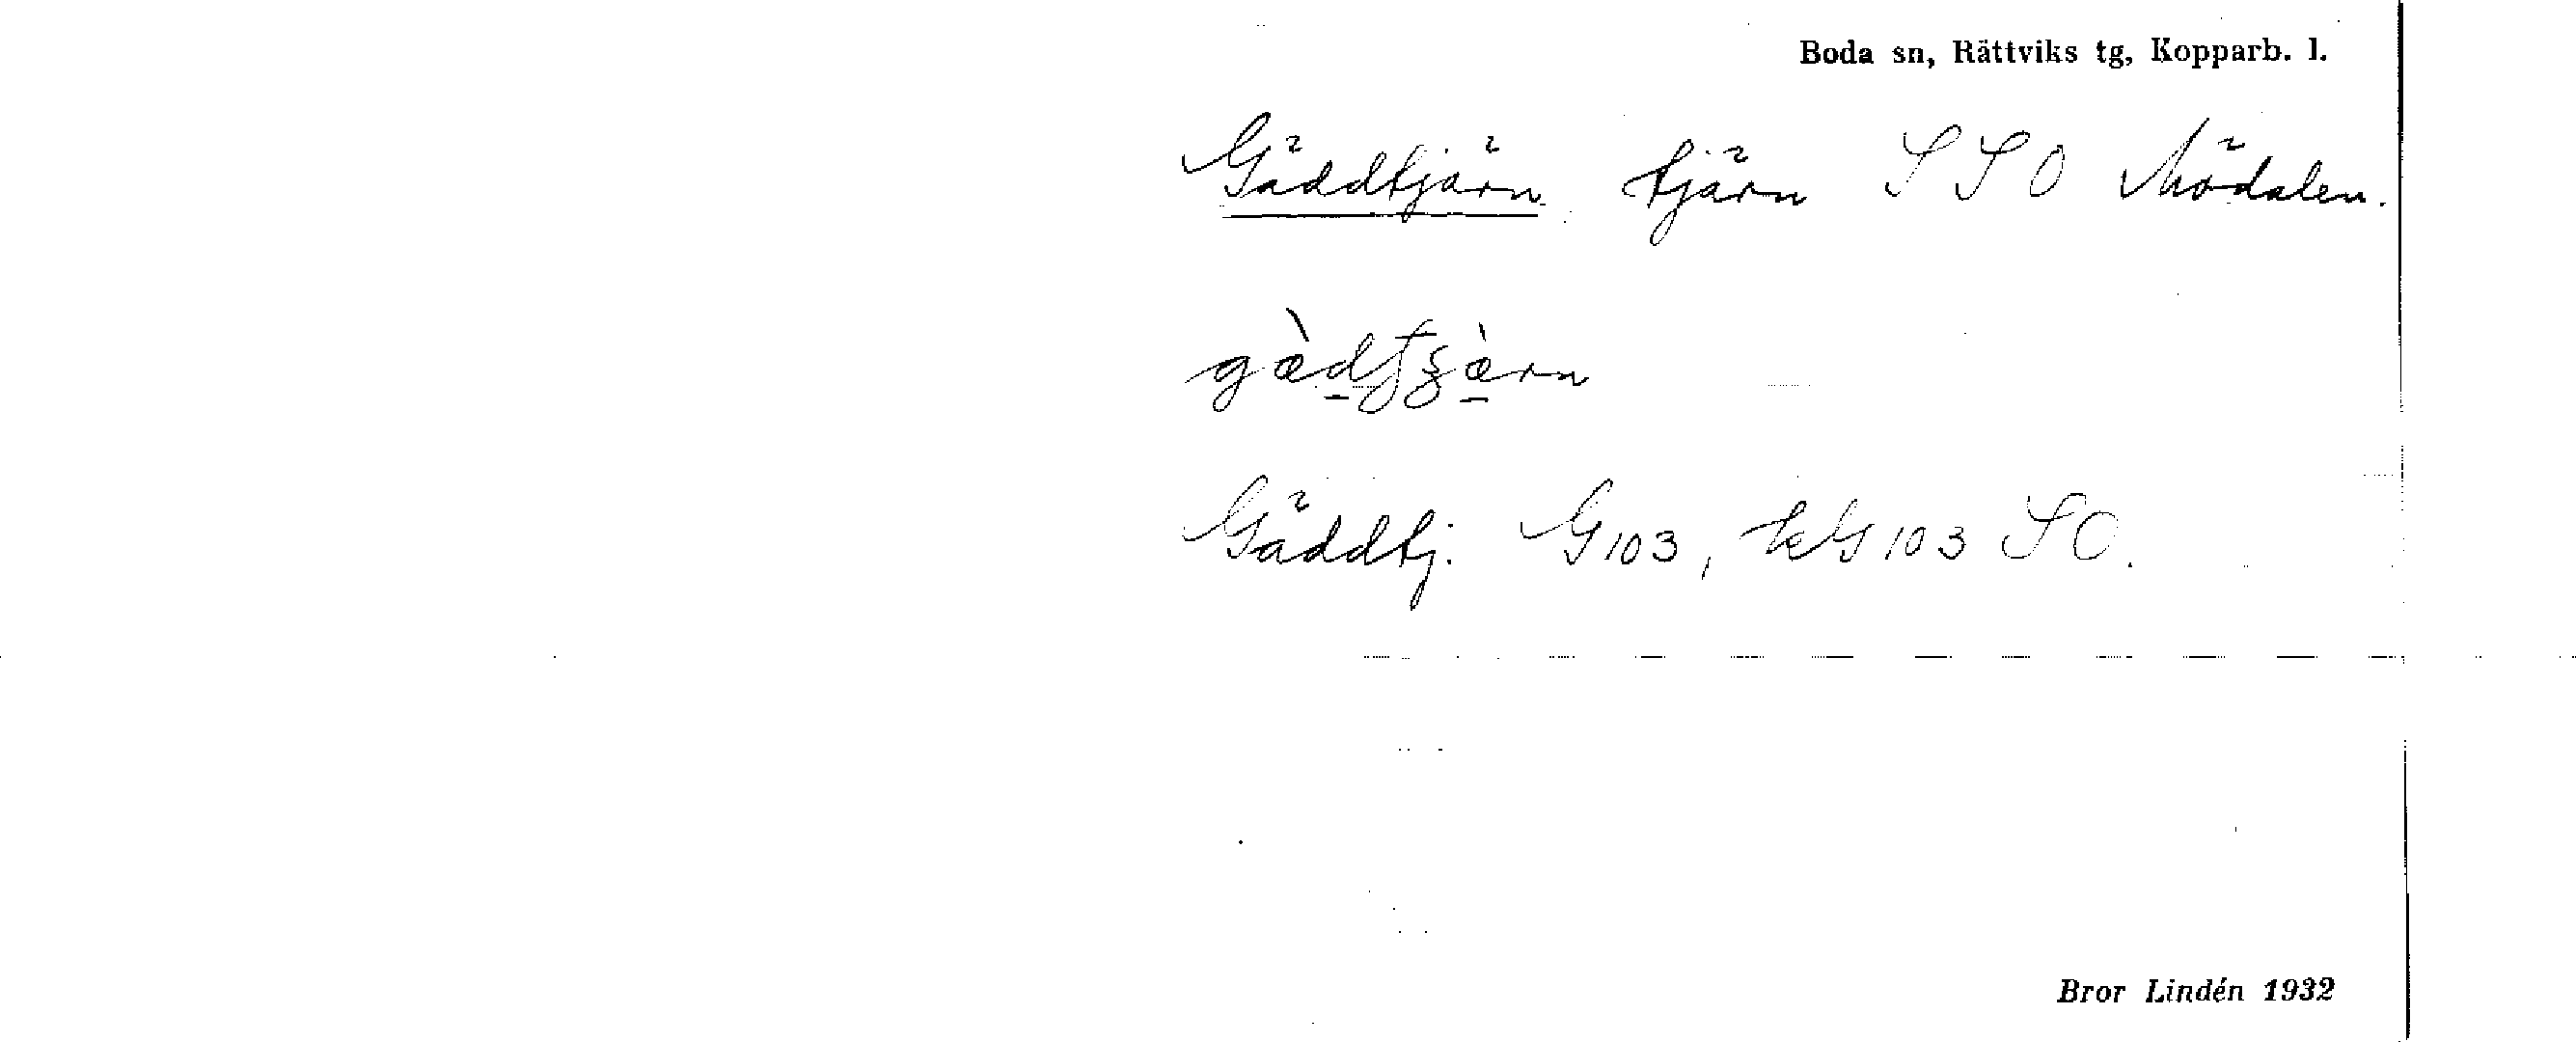 Boda sn, Rättviks tg, Kopparb. l.
Gäddtjärn tjärn SSO Mödalen.
Gäddtj. G103, kG103 SO.
Bror Lindén 1932